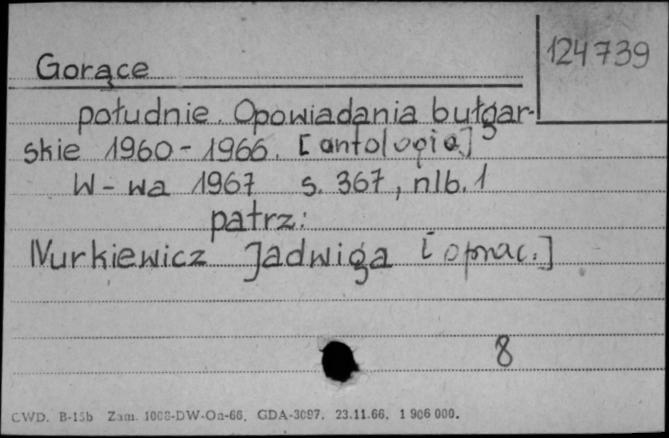 124739
Gorące
południe. Opowiadania bułgar-
skie 1960-1966. [antologia]
W-wa 1967 s. 367, nlb. 1
patrz:
Nurkiewicz Jadwiga [oprac.]
8
CWD. B-15b Zam. 1008-DW-Oa-66. GDA-3097. 23.11.66. 1 906 000.